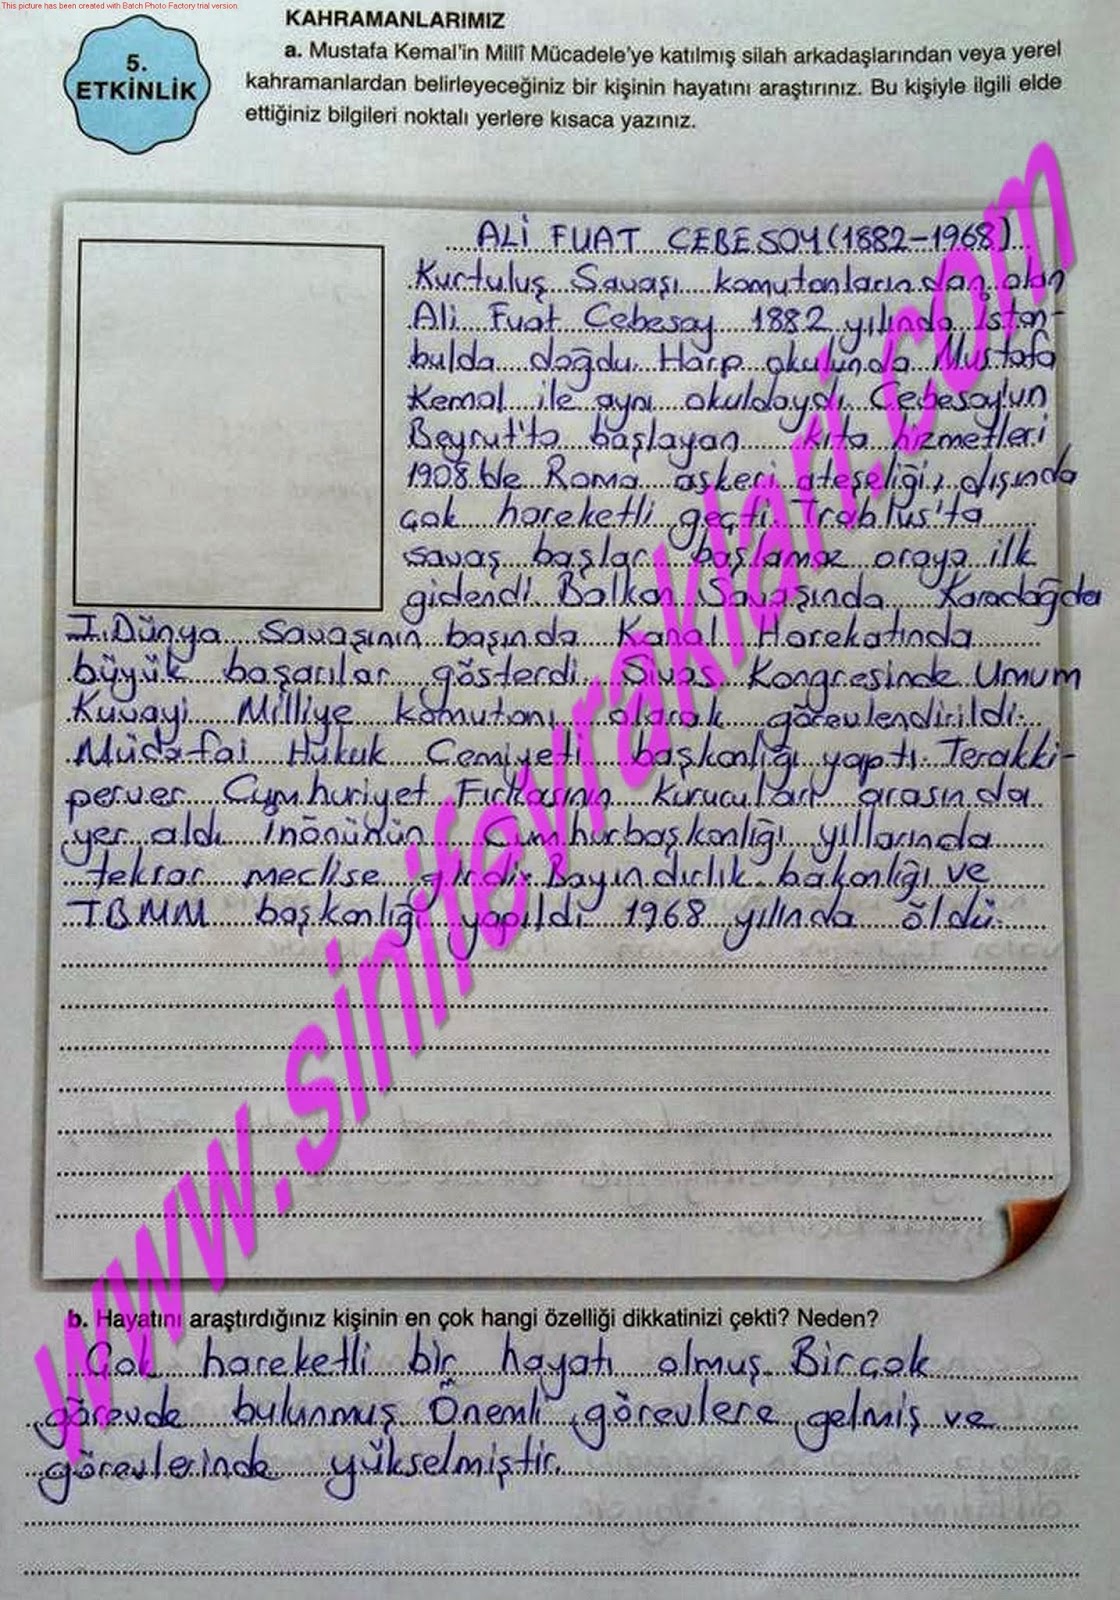 This picture has been created with Batch Photo Factory trial version.
5.
ETKİNLİK
KAHRAMANLARIMIZ
a. Mustafa Kemal'in Millî Mücadele'ye katılmış silah arkadaşlarından veya yerel
kahramanlardan belirleyeceğiniz bir kişinin hayatını araştırınız. Bu kişiyle ilgili elde
ettiğiniz bilgileri noktalı yerlere kısaca yazınız.
ALİ FUAT CEBESOY (1882-1968)
Kurtuluş Savaşı komutanlarından olan
Ali Fuat Cebesoy 1882 yılında İstan-
bulda doğdu. Harp okulunda Mustafa
Kemal ile aynı okuldaydı. Cebesoy'un
Beyrut'ta başlayan kıta hizmetleri
1908'de Roma askeri ateşeliği, dışında
çok hareketli geçti. Trablus'ta
savaş başlar başlamaz oraya ilk
gidendi. Balkan Savaşında, Karadağda
I. Dünya savaşının başında Kanal Harekatında
büyük başarılar gösterdi. Sivas Kongresinde Umum
Kuvayi Milliye komutanı olarak görevlendirildi.
Müdafai Hukuk Cemiyeti başkanlığı yaptı. Terakki-
perver Cumhuriyet Fırkasının kurucuları arasında
yer aldı. İnönünün Cumhurbaşkanlığı yıllarında
tekrar meclise girdi. Bayındırlık bakanlığı ve
TBMM başkanlığı yapıldı. 1968 yılında öldü.
b. Hayatını araştırdığınız kişinin en çok hangi özelliği dikkatinizi çekti? Neden?
Çok hareketli bir hayatı olmuş. Birçok
görevde bulunmuş. Önemli görevlere gelmiş ve
görevlerinde yükselmiştir.
www.sinifevraklari.com